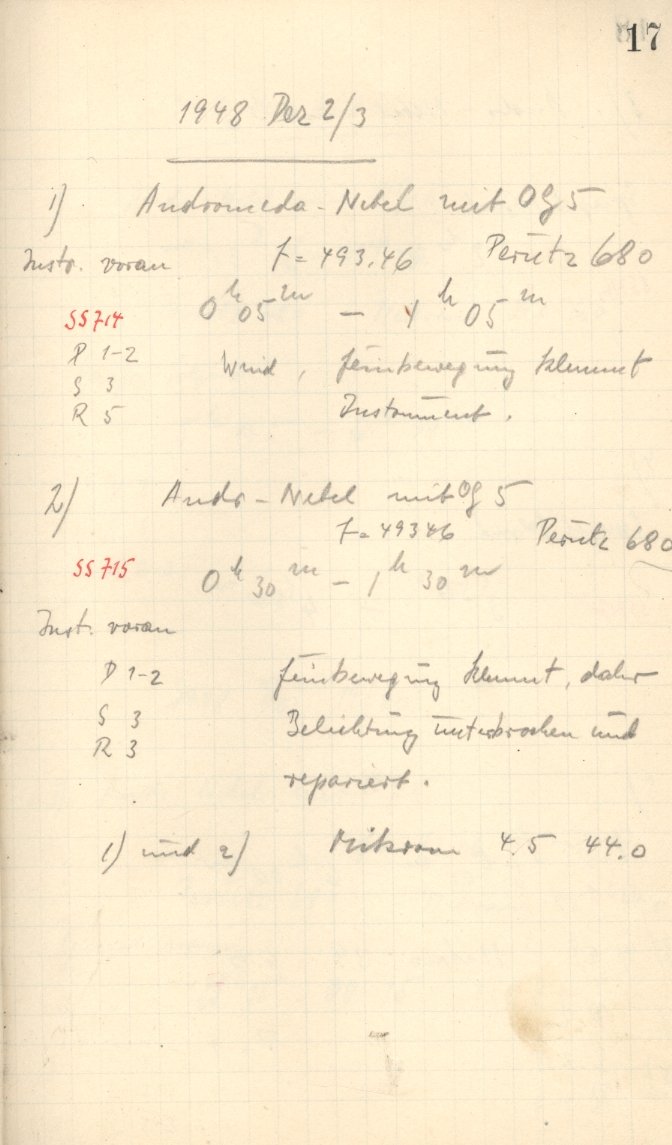 17
1948 Dez 2/3
1) Andromeda-Nebel mit OG5
Instr. voran f = 493.46 Perutz 680
0h 05m – 1h 05m
SS714
P 1-2 Wind, Feinbewegung klemmt
S 3
R 5 Instrument.
2) Andr-Nebel mit OG5
f = 49346 Perutz 680
SS715 0h 30m – 1h 30m
Inst. voran
D 1-2 Feinbewegung klemmt, daher
S 3 Belichtung unterbrochen und
R 3
repariert.
1) und 2) Mikrom 4.5 44.0